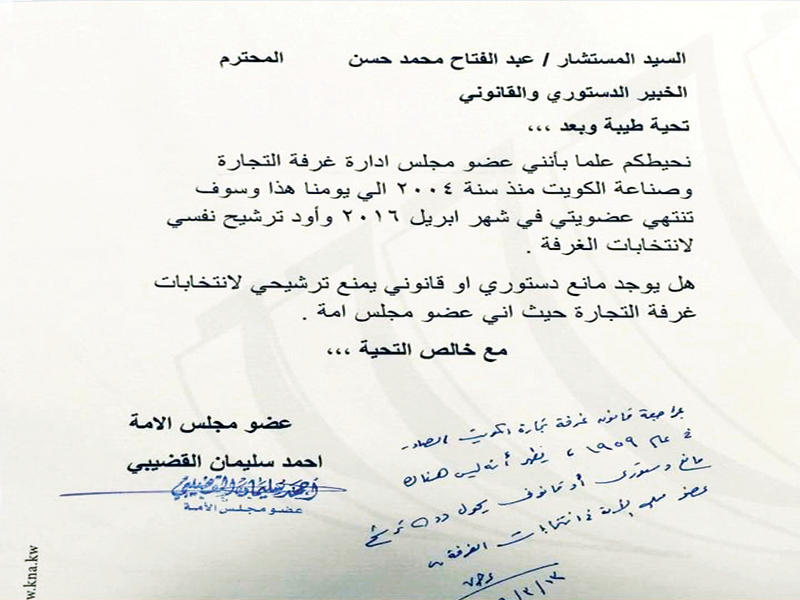 السيد المستشار / عبد الفتاح محمد حسن المحترم
الخبير الدستوري والقانوني
تحية طيبة وبعد ،،،
نحيطكم علما بأنني عضو مجلس ادارة غرفة التجارة
وصناعة الكويت منذ سنة ٢٠٠٤ الي يومنا هذا وسوف
تنتهي عضويتي في شهر ابريل ٢٠١٦ وأود ترشيح نفسي
لانتخابات الغرفة .
هل يوجد مانع دستوري او قانوني يمنع ترشيحي لانتخابات
غرفة التجارة حيث اني عضو مجلس امة .
مع خالص التحية ،،،
عضو مجلس الامة
احمد سليمان القضيبي
أحمد سليمان القضيبي
عضو مجلس الأمة
بمراجعة قانون غرفة تجارة الكويت الصادر
في عام ١٩٥٩ ، يظهر أنه ليس هناك
مانع دستوري أو قانوني يحول دون ترشيح
عضو مجلس الأمة في انتخابات الغرفة
١٣/٣/
w.kna.kw